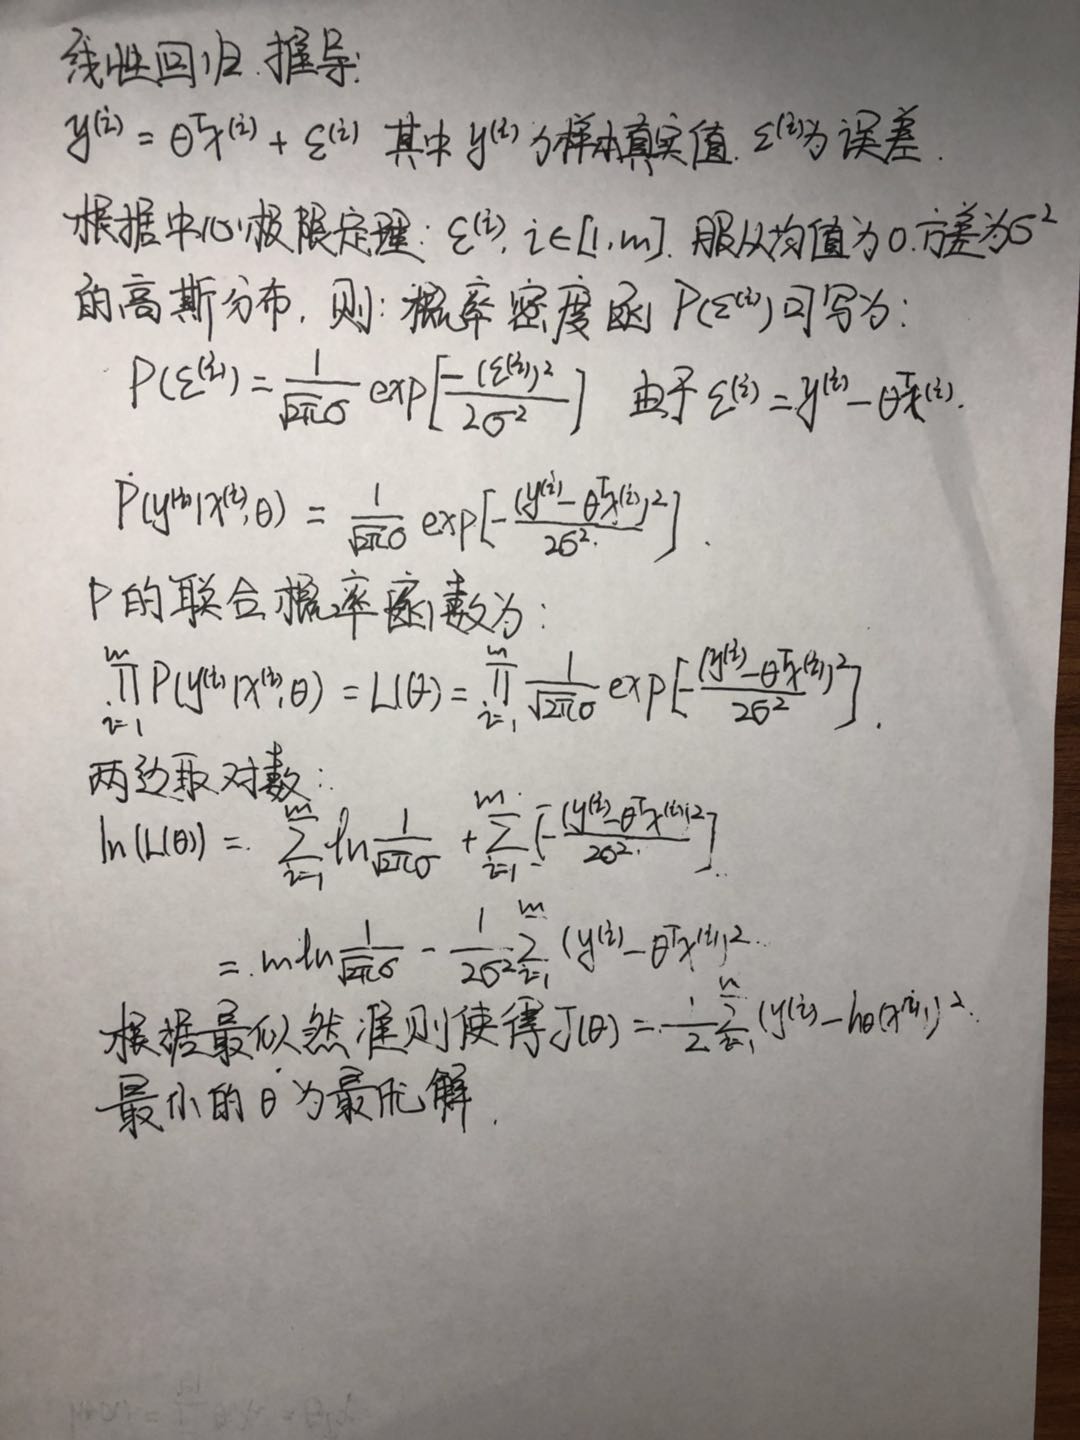 线性回归推导:
y⁽ⁱ⁾ = θᵀx⁽ⁱ⁾ + ε⁽ⁱ⁾ 其中 y⁽ⁱ⁾为样本真实值. ε⁽ⁱ⁾为误差.
根据中心极限定理: ε⁽ⁱ⁾, i∈[1,m]. 服从均值为0.方差为σ²
的高斯分布, 则: 概率密度函 P(ε⁽ⁱ⁾)可写为:
P(ε⁽ⁱ⁾) = 1/(√2π σ) exp[-(ε⁽ⁱ⁾)²/2σ²] 由于 ε⁽ⁱ⁾ = y⁽ⁱ⁾ - θᵀx⁽ⁱ⁾.
P(y⁽ⁱ⁾|x⁽ⁱ⁾,θ) = 1/(√2π σ) exp[-(y⁽ⁱ⁾ - θᵀx⁽ⁱ⁾)²/2σ²].
P的联合概率函数为:
∏ᵢ₌₁ᵐ P(y⁽ⁱ⁾|x⁽ⁱ⁾,θ) = L(θ) = ∏ᵢ₌₁ᵐ 1/(√2π σ) exp[-(y⁽ⁱ⁾ - θᵀx⁽ⁱ⁾)²/2σ²].
两边取对数:
ln(L(θ)) = ∑ᵢ₌₁ᵐ ln 1/(√2π σ) + ∑ᵢ₌₁ᵐ [-(y⁽ⁱ⁾ - θᵀx⁽ⁱ⁾)²/2σ²]
= m ln 1/(√2π σ) - 1/2σ² ∑ᵢ₌₁ᵐ (y⁽ⁱ⁾ - θᵀx⁽ⁱ⁾)²
根据最似然准则使得J(θ) = 1/2 ∑ᵢ₌₁ⁿ (y⁽ⁱ⁾ - hθ(x⁽ⁱ⁾))²
最小的θ为最优解.